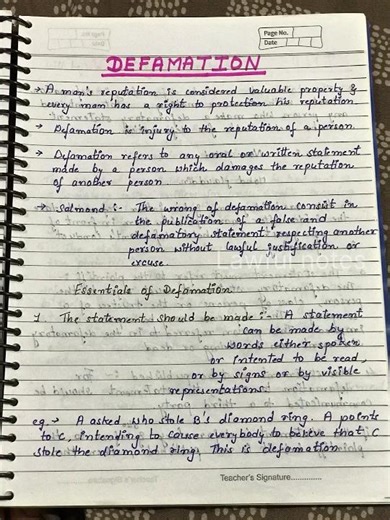 Page No.
Date
DEFAMATION
→ A man's reputation is considered valuable property &
every man has a right to protection his reputation.
→ Defamation is injury to the reputation of a person.
→ Defamation refers to any oral or written statement
made by a person which damages the reputation
of another person
→ Salmond :- The wrong of defamation consist in
the publication of a false and
defamatory statement respecting another
person without lawful justification or
excuse.
Essentials of Defamation
1. The statement should be made :- A statement
can be made by
words either spoken
or intended to be read,
or by signs or by visible
representations.
eg :→ A asked who stole B's diamond ring. A points
to C, intending to cause everybody to believe that C
stole the diamond ring. This is defamation
Teacher's Signature